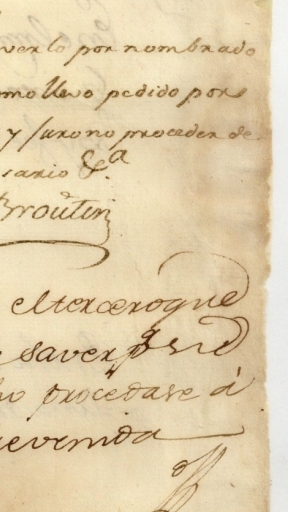 verlo por nombrado
mo llevo pedido por
y juro no proceder de
sario &.a
Broutin
el tercero que
saver p
procedase á
evenida